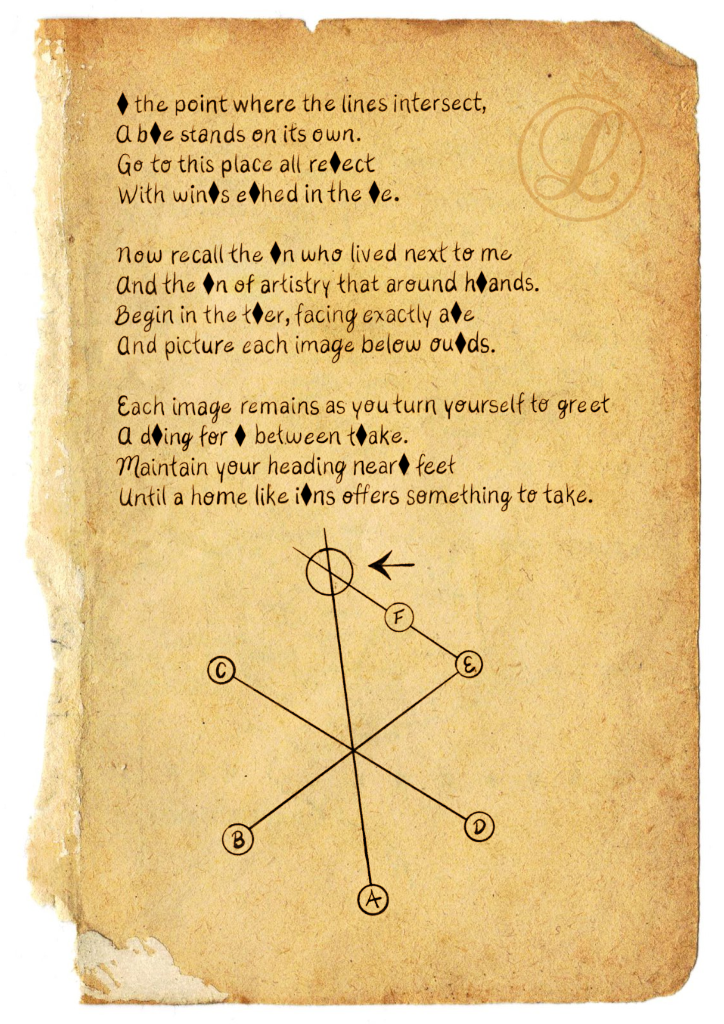 ♦ the point where the lines intersect,
A b♦e stands on its own.
Go to this place all re♦ect
With win♦s e♦hed in the ♦e.
Now recall the ♦n who lived next to me
And the ♦n of artistry that around h♦ands.
Begin in the t♦er, facing exactly a♦e
And picture each image below ou♦ds.
Each image remains as you turn yourself to greet
A d♦ing for ♦ between t♦ake.
Maintain your heading near♦ feet
Until a home like i♦ns offers something to take.
L
F
C
E
B
D
A